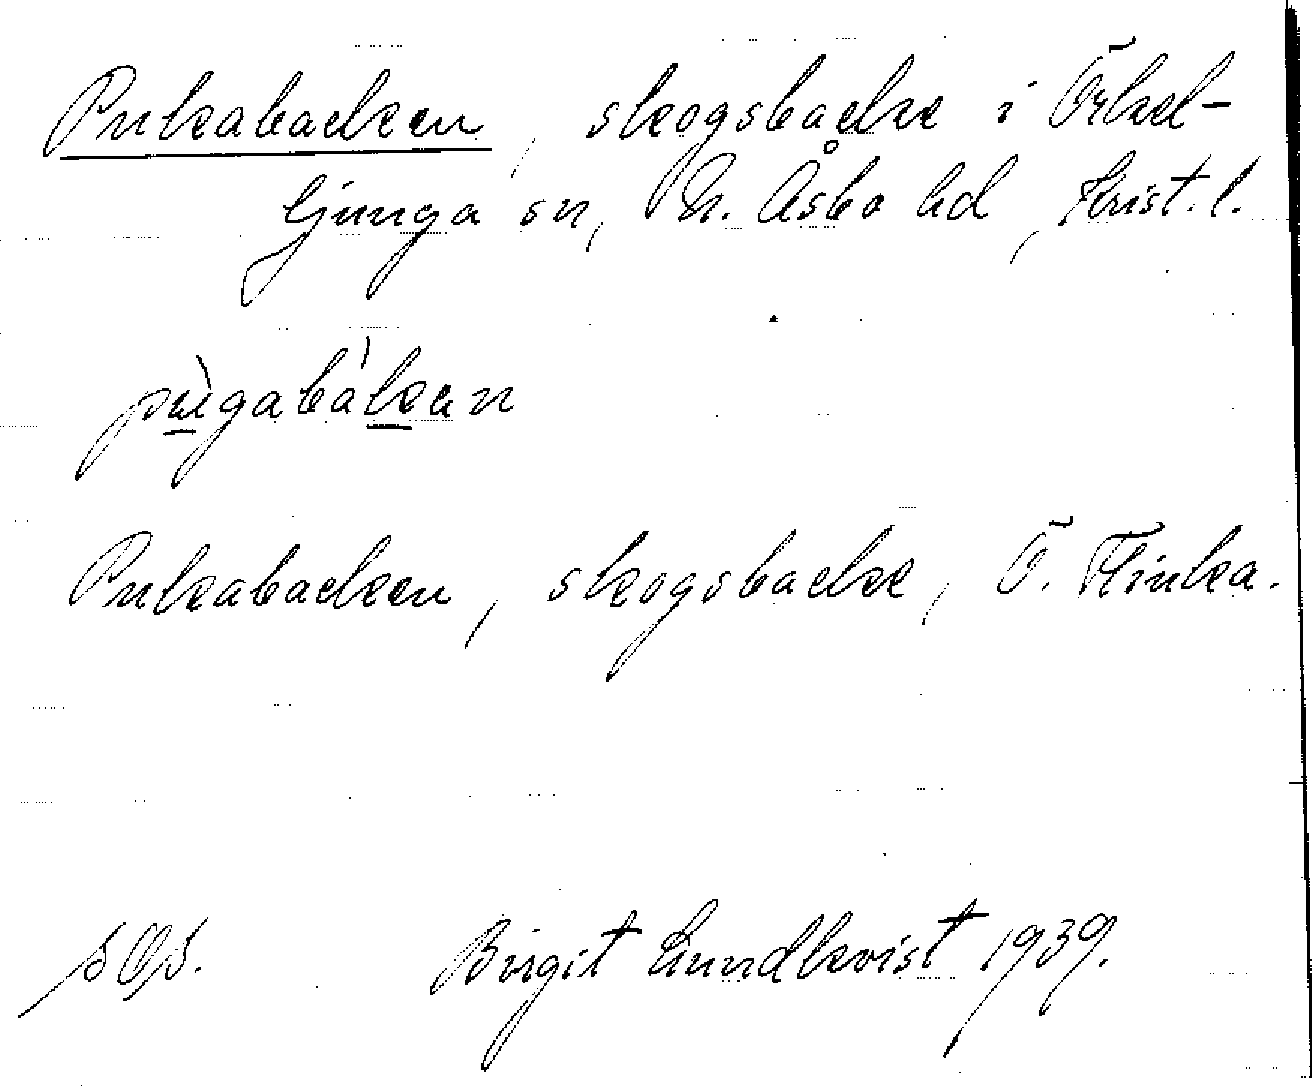 Pukabacken, skogsbacke i Örkel-
ljunga sn, N. Åsbo hd, Krist. l.
pùgabàkan
Pukabacken, skogsbacke, Ö. Flinka.
Birgit Lundkvist 1939.